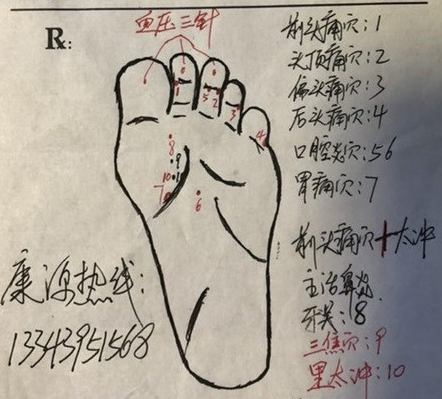 R:
血压三针
前头痛穴:1
头顶痛穴:2
偏头痛穴:3
后头痛穴:4
口腔炎穴:56
胃痛穴:7
前头痛穴+太冲
主治鼻炎
牙关:8
三焦穴:9
里太冲:10
1
5 2
3
4
8
9
10
7
6
康源热线:
13343951568